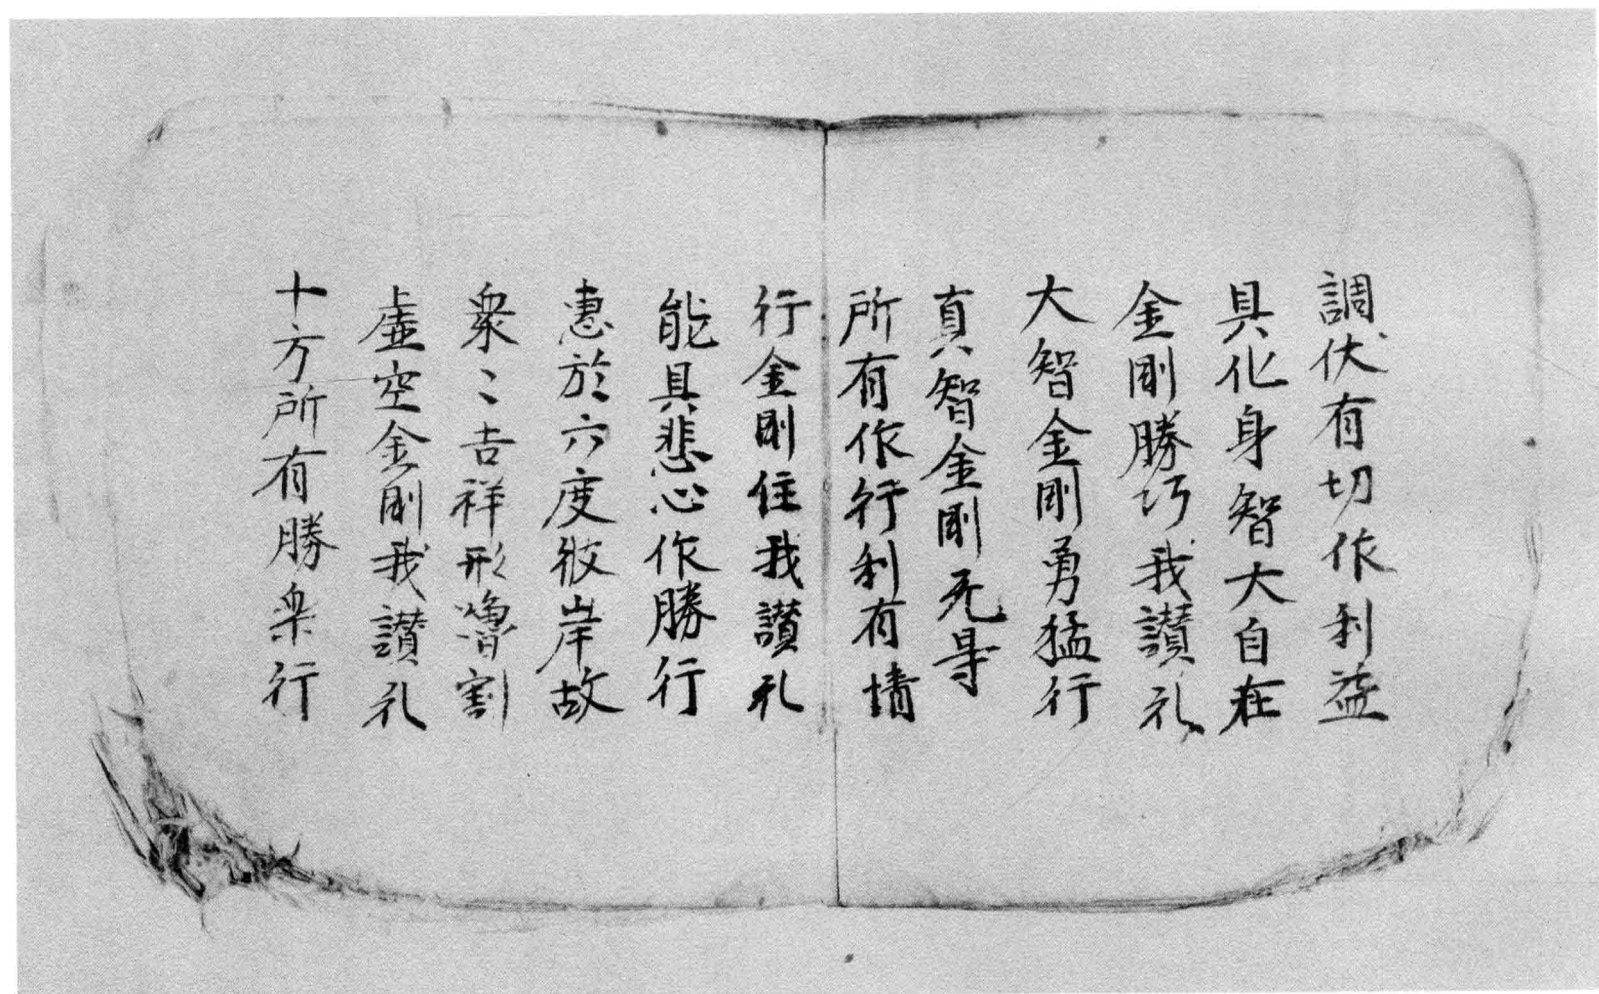 調伏有切作利益
具化身智大自在
金剛勝巧我讃礼
大智金剛勇猛行
真智金剛无㝵
所有作行利有情
行金剛住我讃礼
能具悲心作勝行
恵於六度彼岸故
衆〻吉祥形嚕割
虚空金剛我讃礼
十方所有勝衆行